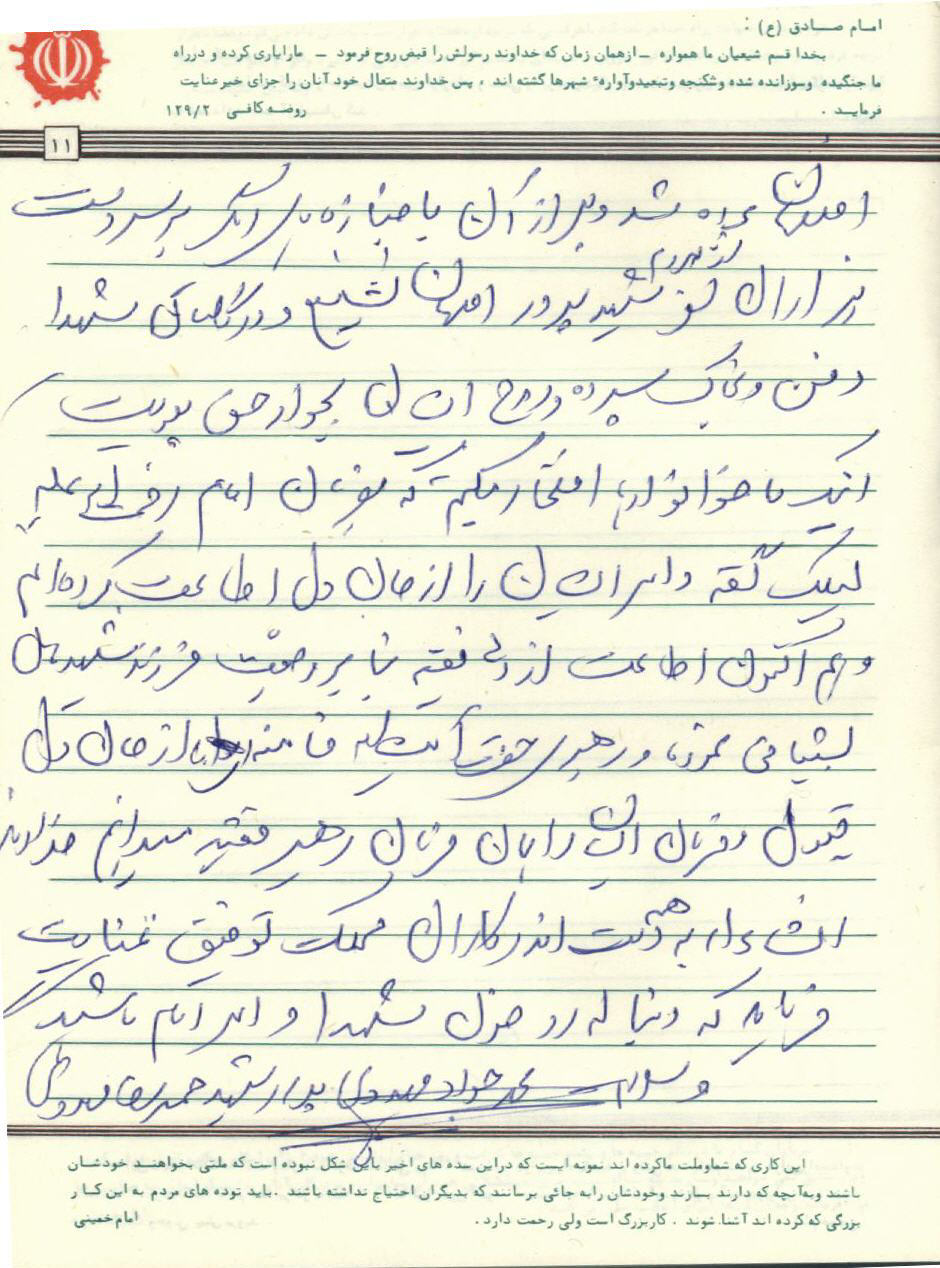 امام صادق (ع) :
بخدا قسم شیعیان ما همواره ـ ازهمان زمان که خداوند رسولش را قبض روح فرمود ـ مارایاری کرده و درراه
ما جنگیده وسوزانده شده وشکنجه وتبعیدوآوارهٔ شهرها گشته اند ، پس خداوند متعال خود آنان را جزای خیرعنایت
فرمایـد .
روضه کافـی ۱۲۹/۲
۱۱
اصفهان برده شد وبعد از آن با جنازه های دیگر بر سر دست
از مردم
هزاران نفر شهید پرور اصفهان تشییع و در گلستان شهدا
دفن و بخاک سپرده و روح آن بجوار حق پیوست
اینک ما خانواده ها افتخار میکنیم که بفرمان امام رضوان الله علیه
لبیک گفته و امر ایشان را از جان و دل اطاعت کرده ایم
و هم اکنون اطاعت از ولی فقیه بنا بر وصیت فرزند شهیدمان
پشتیبانی نموده و رهبری حضرت آیت الله خامنه ای را از جان و دل
قبول و فرمان ایشان را بمان فرمان رهبر فقید میدانیم خداوند
انشاءاله به همه دست اندرکاران مملکت توفیق عنایت
فرماید که دنباله رو خون شهدا و امر امام باشند
والسلام محمد جواد مهدوی پدر شهید حمیدرضا مهدوی
این کاری که شماوملت ماکرده اند نمونه ایست که دراین سده های اخیر باین شکل نبوده است که ملتی بخواهنـد خودشـان
باشند وبه‌آنچه که دارند بسازند وخودشان رابه جائی برسانند که بدیگران احتیاج نداشته باشند . باید توده های مردم به این کـا ر
بزرگی که کرده اند آشنا شوند . کاربزرگ است ولی رحمت دارد .
امام خمینی